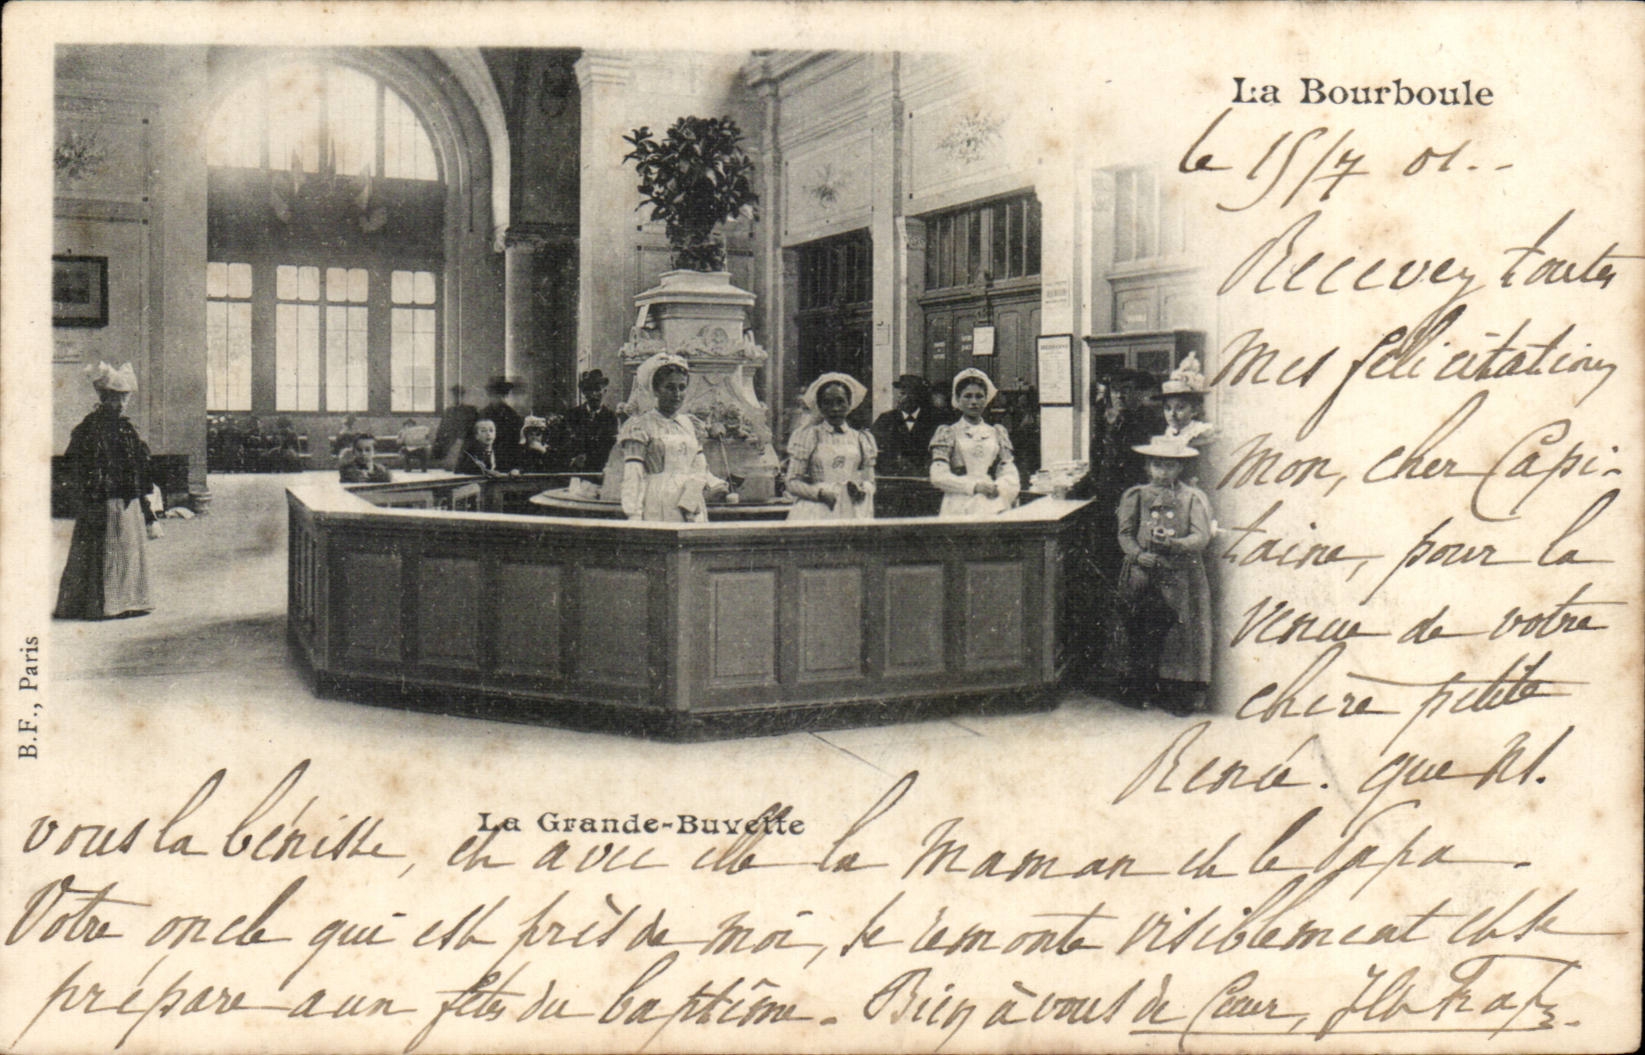 La Bourboule
le 15/7 01..
Recevez toutes
mes félicitations
mon, cher Capi-
taine, pour la
venue de votre
chère petite
Renée. que N.
vous la bénisse, et avec elle la maman et le Papa.
La Grande-Buvette
Votre oncle qui est près de moi, se remonte visiblement et se
prépare aux fêtes du baptême. Bien à vous de Cœur,
B.F., Paris